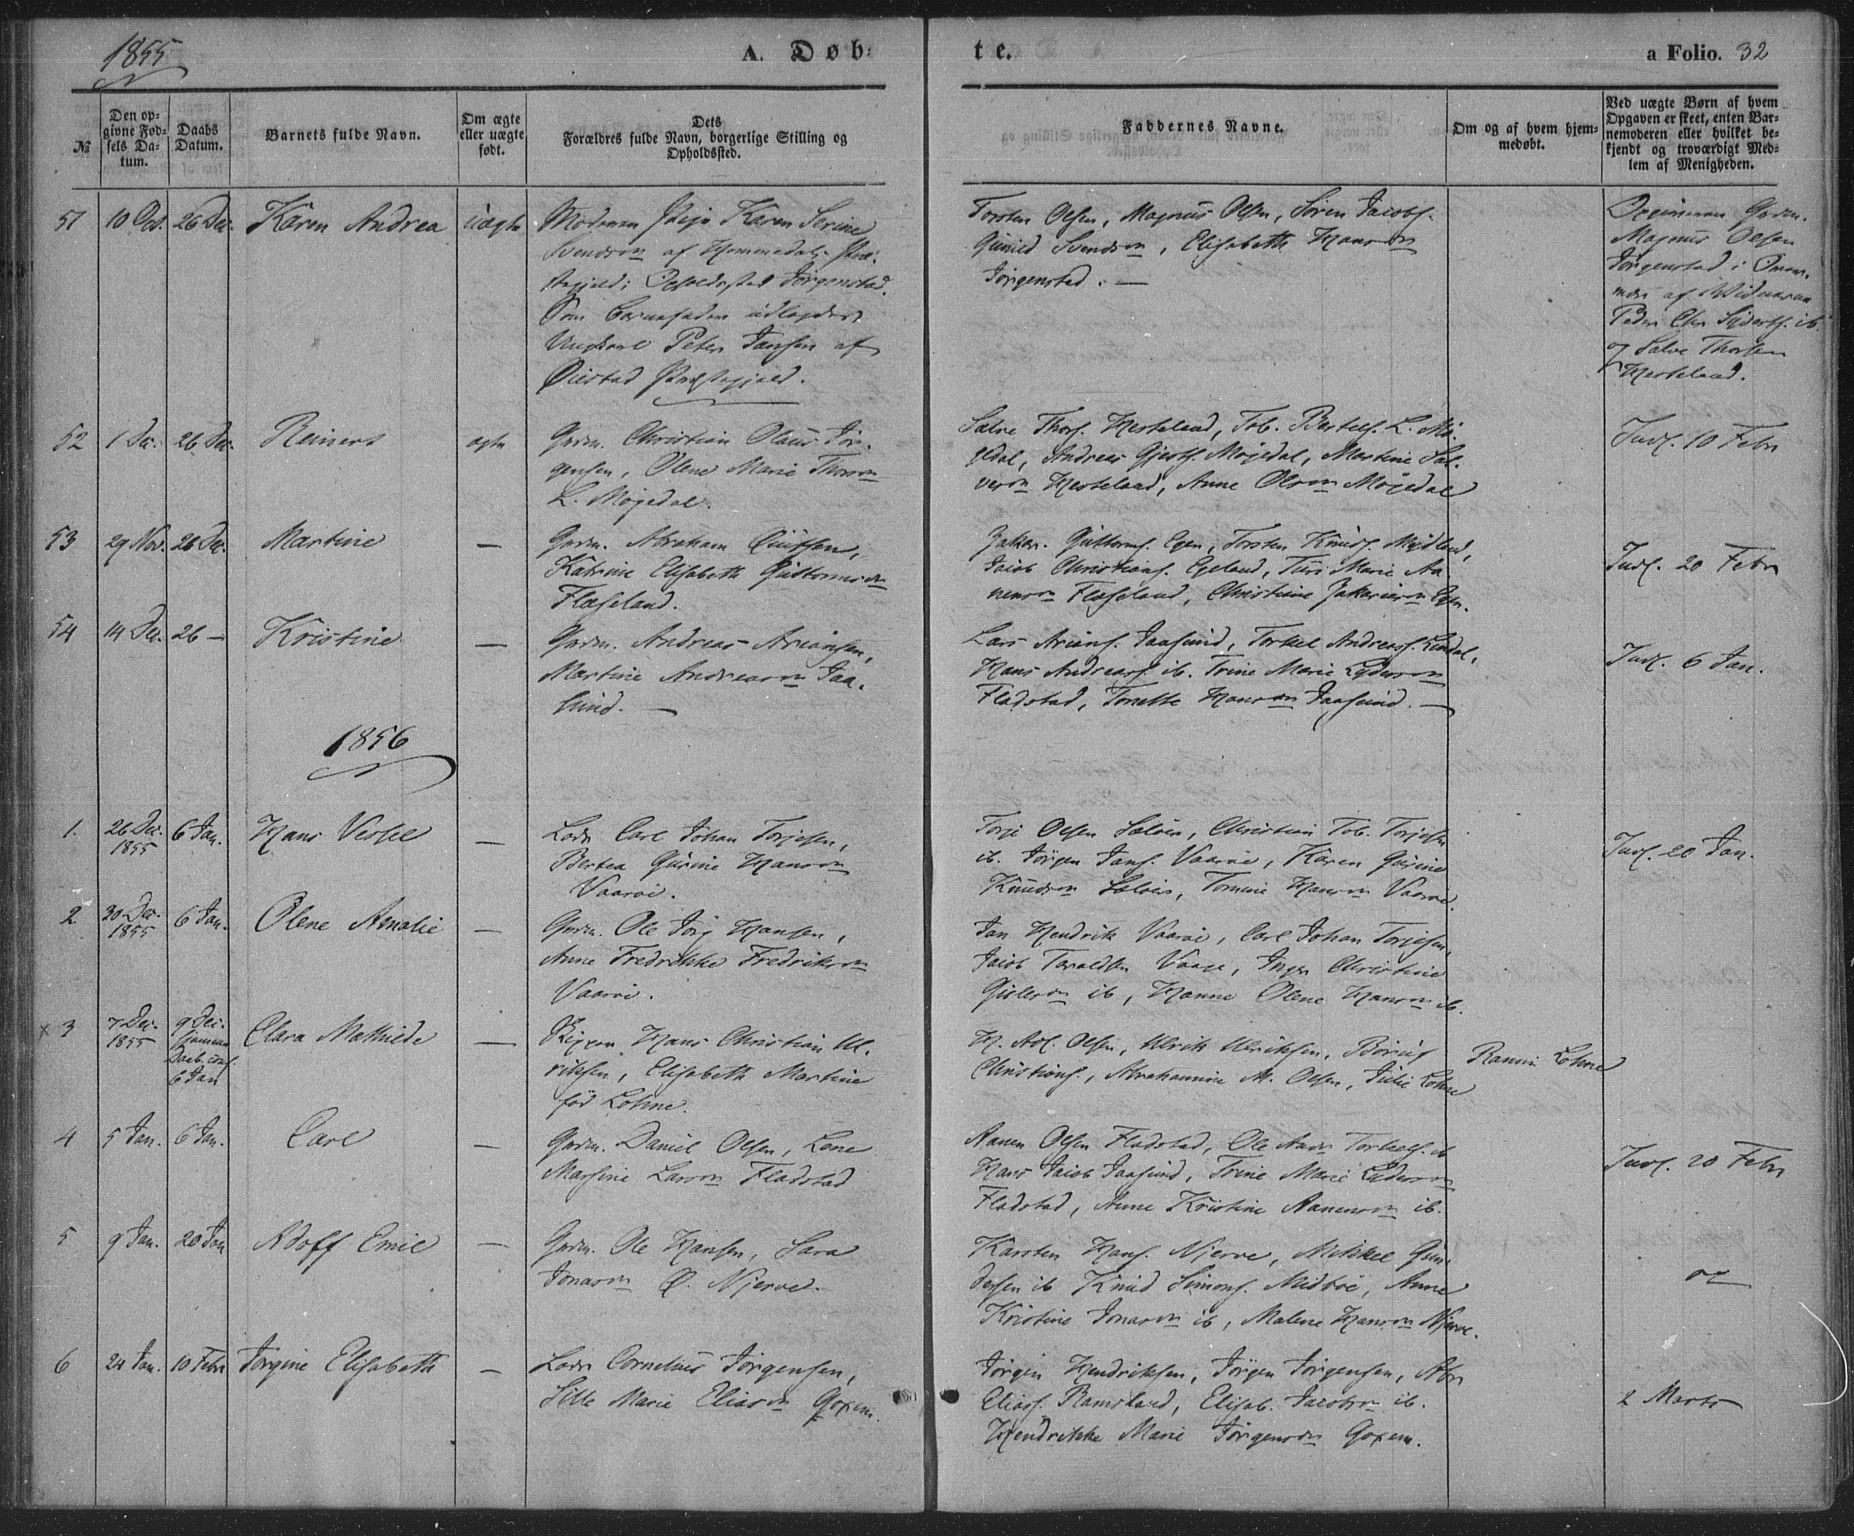 1855
A. Døb-
te.
a Folio. 32
№
Den opgivne Fødsels Datum.
Daabs Datum.
Barnets fulde Navn.
Om ægte eller uægte født.
Dets Forældres fulde Navn, borgerlige Stilling og Opholdssted.
Faddernes Navne.
Om og af hvem hjemmedøbt.
Ved uægte Børn af hvem Opgaven er skeet, enten Barnemoderen eller hvilket bekjendt og troværdigt Medlem af Menigheden.
51 10 Oct. 26 Dec. Karen Andrea Uægte
Moderen Pige Karen Serine
Svendsdn af Hommedals Præ-
stegjeld; Opholdssted Jørgenstad.
Som Barnefader udlagdes
Ungkarl Peter Jansen af
Øiestad Præstegjeld.
Torsten Olsen, Magnus Olsen, Søren Jacobs.
Gunild Svendsdn, Elisabeth Hansdn
Jørgenstad. —
Grdm.
Magnus Olsen
Jørgenstad i
af
Peder Chr ib.
og Salve Thorsen
Hesteland.
52 1 Dec. 26 Dec. Reinert ægte
Grdm. Christian Olaus Jør-
gensen, Olene Marie Thorsdn
L. Møgedal.
Salve Thors. Hesteland, Tob. Bertels. L. Mø-
gedal, Andreas Gjerts. Møgedal, Martine Sal-
vesdn Hesteland, Anne Olsdn Møgedal
Indl. 10 Febr
53 29 Nov. 26 Dec. Martine —
Grdm. Abraham
Katrine Elisabeth Guttormsdn
Flageland.
Zakar. Guttorms. Egen, Torsten Knuds. Mydland,
Jacob Christians. Egeland, Turi Marie Aa-
nensdn Flageland, Christine Zakariasdn Egen.
Indl. 20 Febr
54 14 Dec. 26 — Kristine —
Grdm. Andreas Ariansen,
Martine Andreasdn Jaa-
sund. —
Lars Arians. Jaasund, Torkel Andreass. Lindal,
Hans Andreass. ib. Trine Marie Lydersdn
Fladstad, Tonette Hansdn Jaasund. —
Indl. 6 Jan.
1856
1. 26 Dec. 1855 6 Jan. Hans Vessel —
Lods Carl Johan Torjesen,
Bertea Gurine Hansdn
Vaarøi.
Torje Olsen Saløer, Christian Tob. Torjesen
ib. Jørgen Jans. Vaarøe, Karen Gurine
Knudsdn Saløer, Tomine Hansdn Vaarøe.
Indl. 20 Jan.
2. 30 Dec. 1855 6 Jan. Olene Amalie —
Grdm. Ole Jørg Hansen,
Anne Fredrikke Fredriksdn
Vaarøi.
Jan Hendrik Vaarøi, Carl Johan Torjesen,
Jacob Taraldsen Vaage, Inger Christine
Gislesdn ib, Hanne Olene Hansdn ib.
x 3 7 Dec. 1855 9 Dec.
Daab conf.
6 Jan Clara Mathilde —
Hans Christian Ul-
riksen, Elisabeth Martine
fød Lohne.
H. Ad. Olsen, Ulrik Ulriksen, Børuf
Christians., Abrahamine M. Olsen, Julie Lohne
Ranni Lohne
4 5 Jan. 6 Jan. Carl —
Grdm. Daniel Olsen, Lene
Marsine Larsdn Fladstad
Aanen Olsen Fladstad, Ole Aads Torkels. ib
Hans Jacob Jaasund, Trine Marie Lydersdn
Fladstad, Anne Kristine Aanensdn ib.
Indl. 20 Febr
5 9 Jan. 20 Jan Adolf Emil —
Grdm. Ole Hansen, Sara
Jonasdn Ø. Njerve.
Karsten Hans. Njerve, Mikkel Gun-
dersen ib Knud Simons. Midbøe, Anne
Kristine Jonasdn ib, Malene Hansdn Njerve.
6 24 Jan. 10 Febr Jørgine Elisabeth —
Lods Cornelius Jørgensen,
Sille Marie Eliasdn Goxem.
Jørgen Hendriksen, Jørgen Jørgensen, Abr
Elias. Ramsland, Elisab. Jacobsdn ib.
Hendrikke Marie Jørgensdn Goxem.
2 Marts